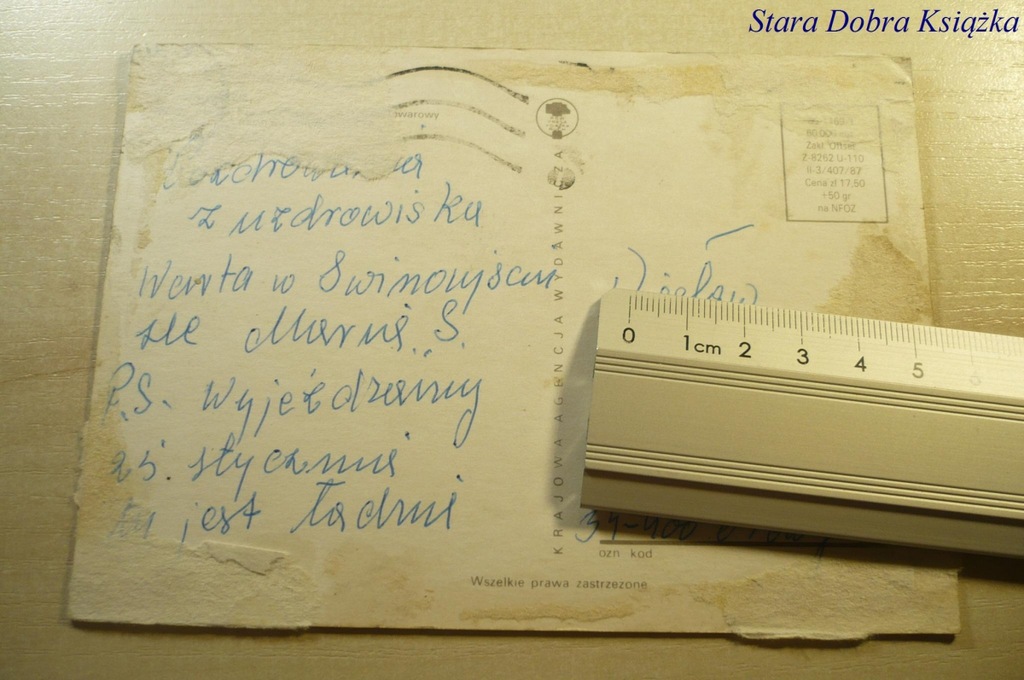 Stara Dobra Książka
owarowy
Pozdrowienia
z uzdrowiska
Warta w Swinoujsciu
śle Marua S.
P.S. Wyjeżdzamy
25. stycznia
tu jest ładnie
KRAJOWA AGENCJA WYDAWNICZA
Zakł. Offset.
Z-8262 U-110
II-3/407/87
Cena zł 17,50
+50 gr
na NFOZ
ozn kod
Wszelkie prawa zastrzeżone
0 1cm 2 3 4 5 6